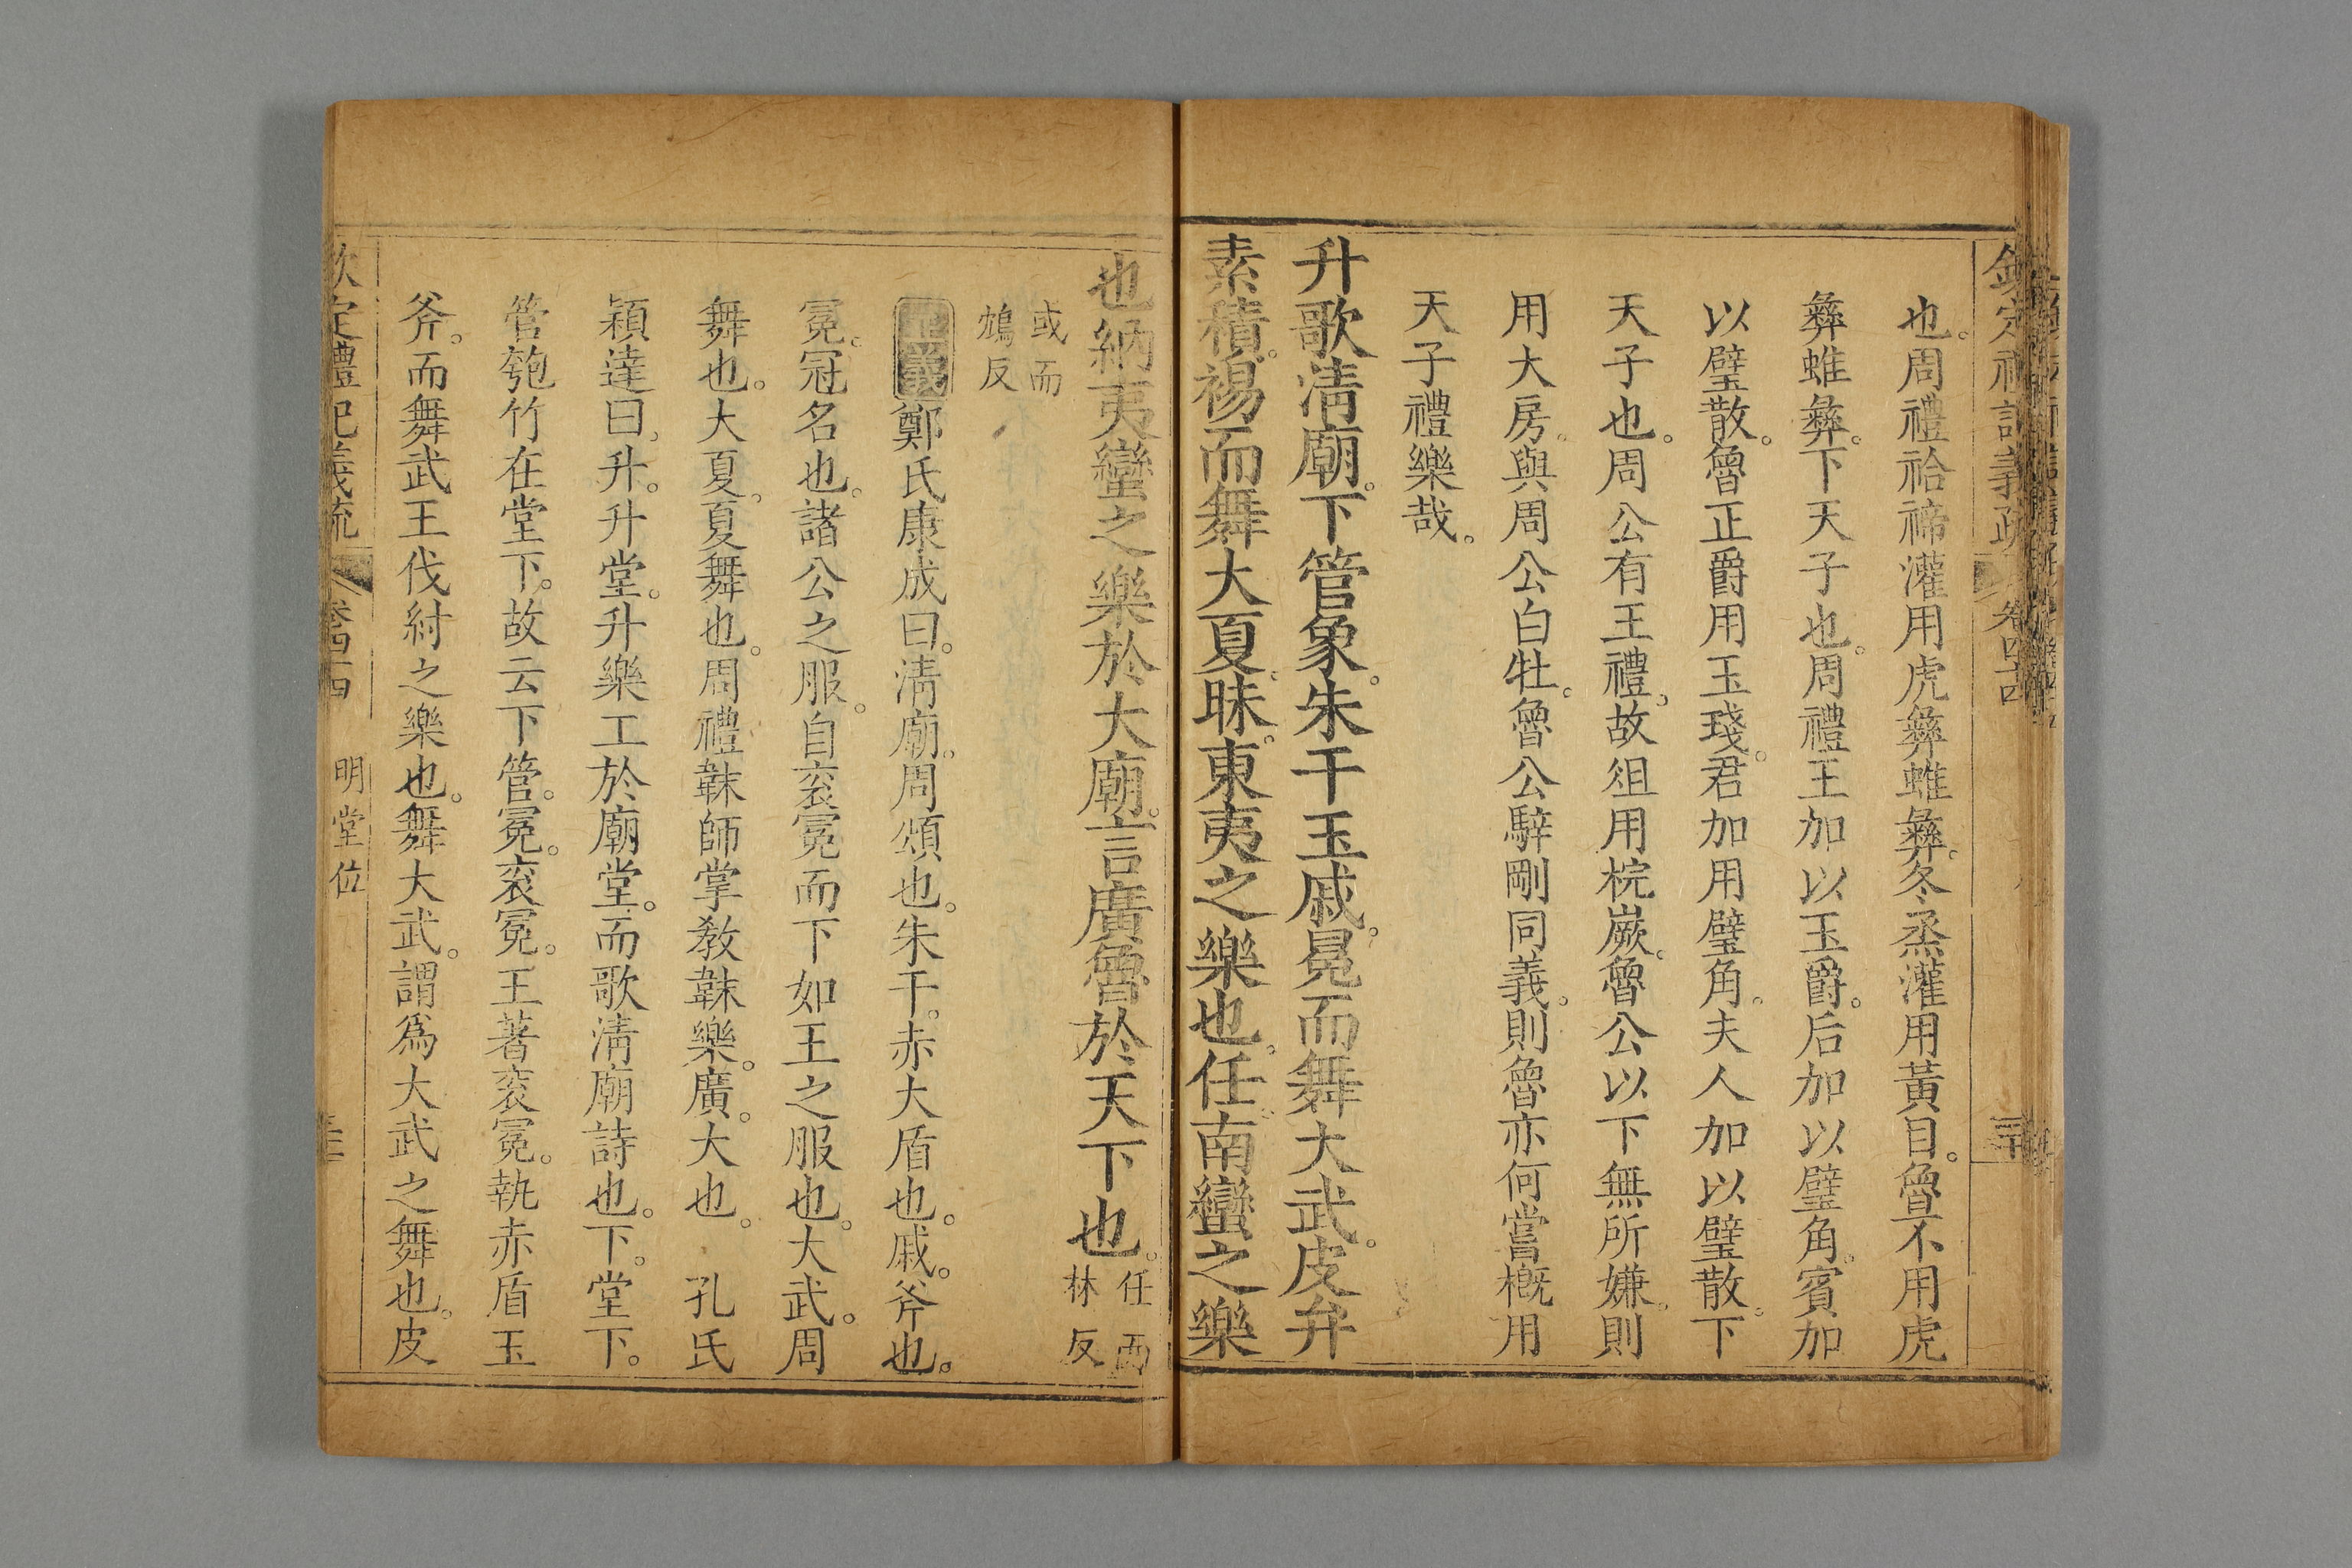 欽定禮記義疏 卷四十四
也。周禮祫禘灌用虎彝蜼彝。冬烝灌用黃目。魯不用虎
彝蜼彝。下天子也。周禮王加以玉爵。后加以璧角。賓加
以璧散。魯正爵用玉琖。君加用璧角。夫人加以璧散。下
天子也。周公有王禮。故俎用梡嶡。魯公以下無所嫌。則
用大房。與周公白牡。魯公騂剛同義。則魯亦何嘗概用
天子禮樂哉。
升歌淸廟。下管象。朱干玉戚。冕而舞大武。皮弁
素積。裼而舞大夏。昧。東夷之樂也。任。南蠻之樂
也納夷蠻之樂於大廟。言廣魯於天下也。任而林反
或而鴆反
正義鄭氏康成曰。淸廟。周頌也。朱干。赤大盾也。戚。斧也。
冕。冠名也。諸公之服。自衮冕而下如王之服也。大武。周
舞也。大夏。夏舞也。周禮韎師掌敎韎樂。廣。大也。 孔氏
穎達曰。升。升堂。升樂工於廟堂。而歌淸廟詩也。下。堂下。
管匏竹在堂下。故云下管。冕。衮冕。王著衮冕。執赤盾玉
斧。而舞武王伐紂之樂也。舞大武。謂爲大武之舞也。皮
欽定禮記義疏 卷四十四 明堂位